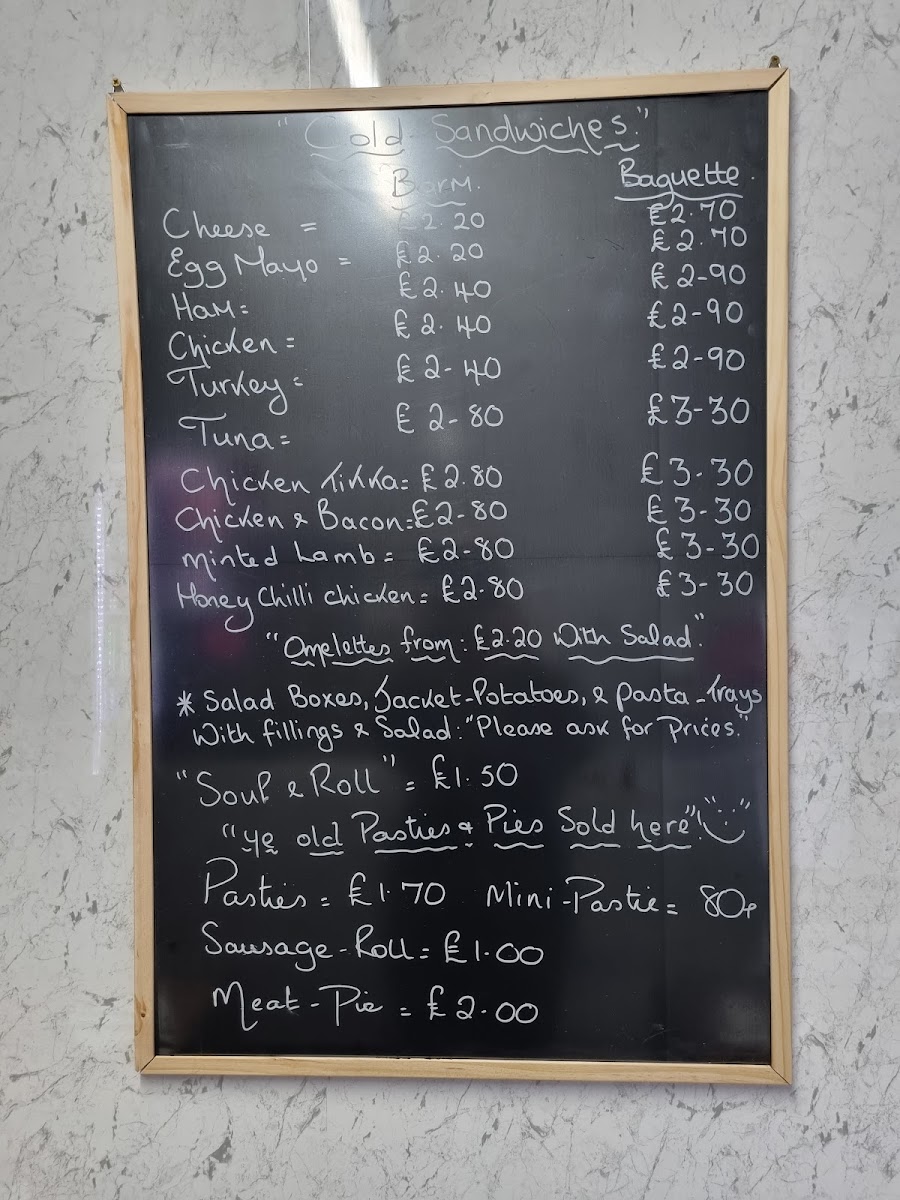 "Cold Sandwiches."
Barm. Baguette.
Cheese = £2.20 £2.70
Egg Mayo = £2.20 £2.70
Ham= £2.40 £2-90
Chicken = £2.40 £2-90
Turkey = £2-40 £2-90
Tuna= £2-80 £3-30
Chicken Tikka= £2.80 £3-30
Chicken & Bacon=£2-80 £3-30
Minted Lamb= £2-80 £3-30
Honey Chilli chicken= £2.80 £3-30
"Omelettes from: £2.20 With Salad."
* Salad Boxes, Jacket-Potatoes, & Pasta-Trays
With fillings & Salad: "Please ask for Prices."
"Soup & Roll" = £1.50
"ye old Pasties & Pies Sold here"!
Pasties = £1.70 Mini-Pastie = 80p
Sausage-Roll= £1.00
Meat-Pie = £2.00